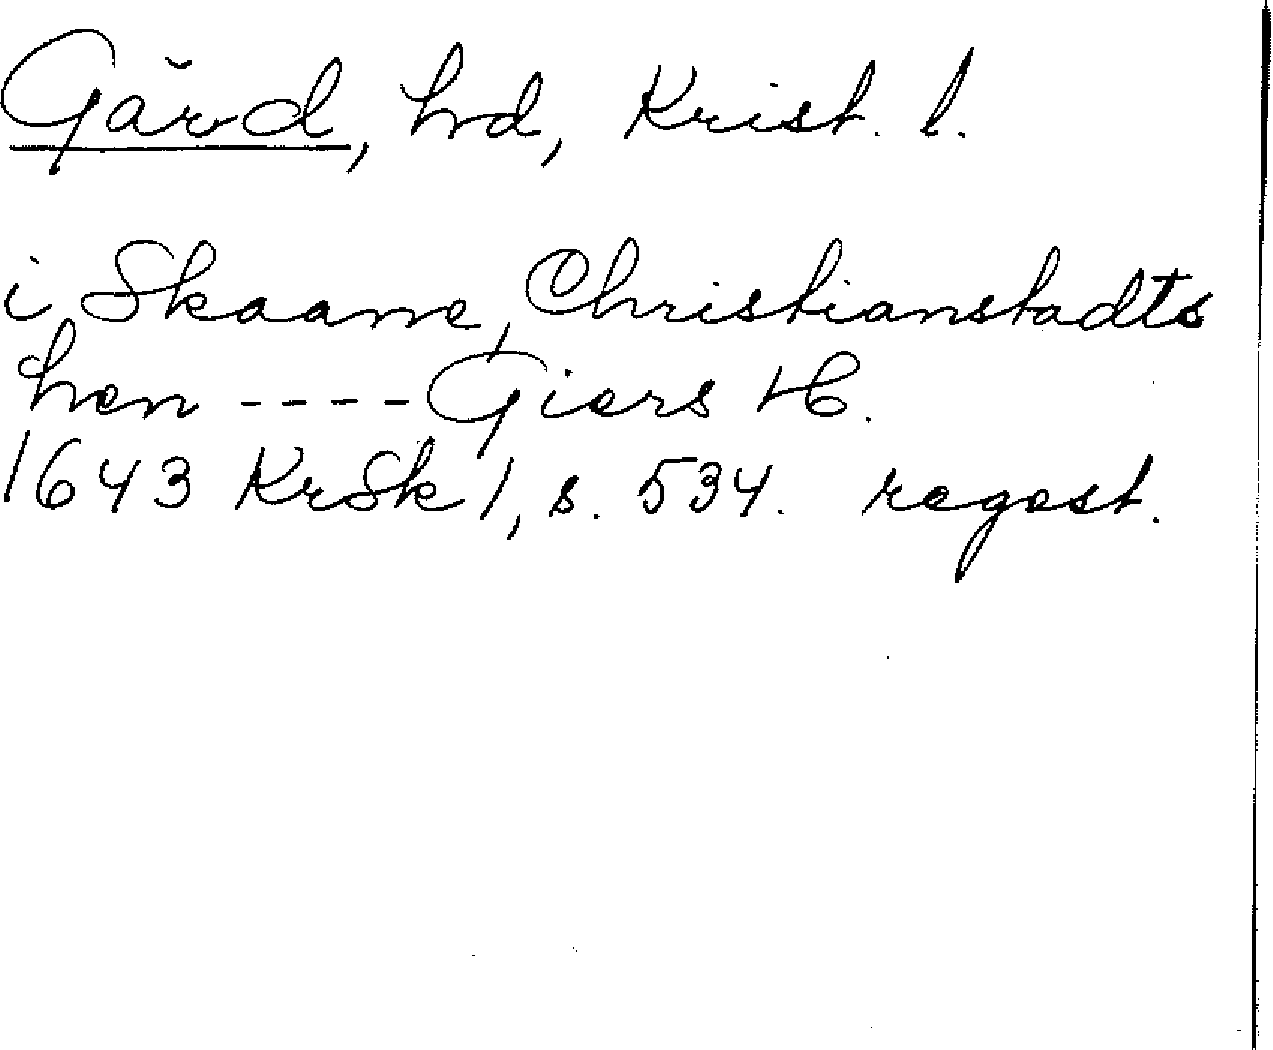 Gärd, hrd, Krist. l.
i Skaane, Christianstadts
hen ---- Giers H.
1643 KrSk 1, s. 534. regest.